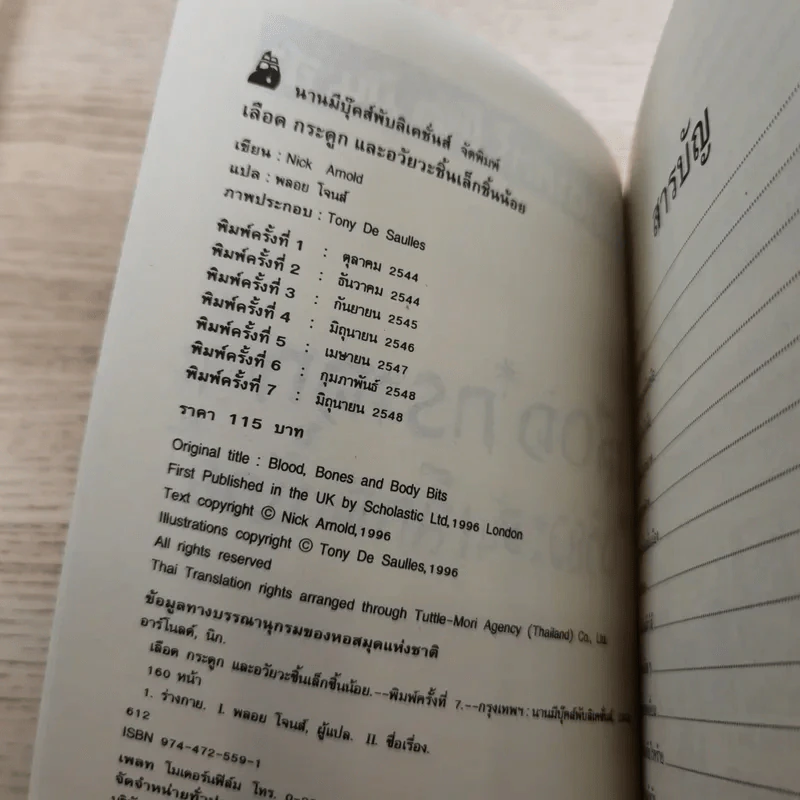 นานมีบุ๊คส์พับลิเคชั่นส์ จัดพิมพ์
เลือด กระดูก และอวัยวะชิ้นเล็กชิ้นน้อย
เขียน : Nick Arnold
แปล : พลอย โจนส์
ภาพประกอบ : Tony De Saulles
พิมพ์ครั้งที่ 1 : ตุลาคม 2544
พิมพ์ครั้งที่ 2 : ธันวาคม 2544
พิมพ์ครั้งที่ 3 : กันยายน 2545
พิมพ์ครั้งที่ 4 : มิถุนายน 2546
พิมพ์ครั้งที่ 5 : เมษายน 2547
พิมพ์ครั้งที่ 6 : กุมภาพันธ์ 2548
พิมพ์ครั้งที่ 7 : มิถุนายน 2548
ราคา 115 บาท
Original title : Blood, Bones and Body Bits
First Published in the UK by Scholastic Ltd,1996 London
Text copyright © Nick Arnold,1996
Illustrations copyright © Tony De Saulles,1996
All rights reserved
Thai Translation rights arranged through Tuttle-Mori Agency (Thailand) Co., Ltd.
ข้อมูลทางบรรณานุกรมของหอสมุดแห่งชาติ
อาร์โนลด์, นิก.
เลือด กระดูก และอวัยวะชิ้นเล็กชิ้นน้อย.--พิมพ์ครั้งที่ 7.--กรุงเทพฯ : นานมีบุ๊คส์พับลิเคชั่นส์,
160 หน้า
1. ร่างกาย. I. พลอย โจนส์, ผู้แปล. II. ชื่อเรื่อง.
612
ISBN 974-472-559-1
เพลท โมเดอร์นฟิล์ม โทร.
สารบัญ